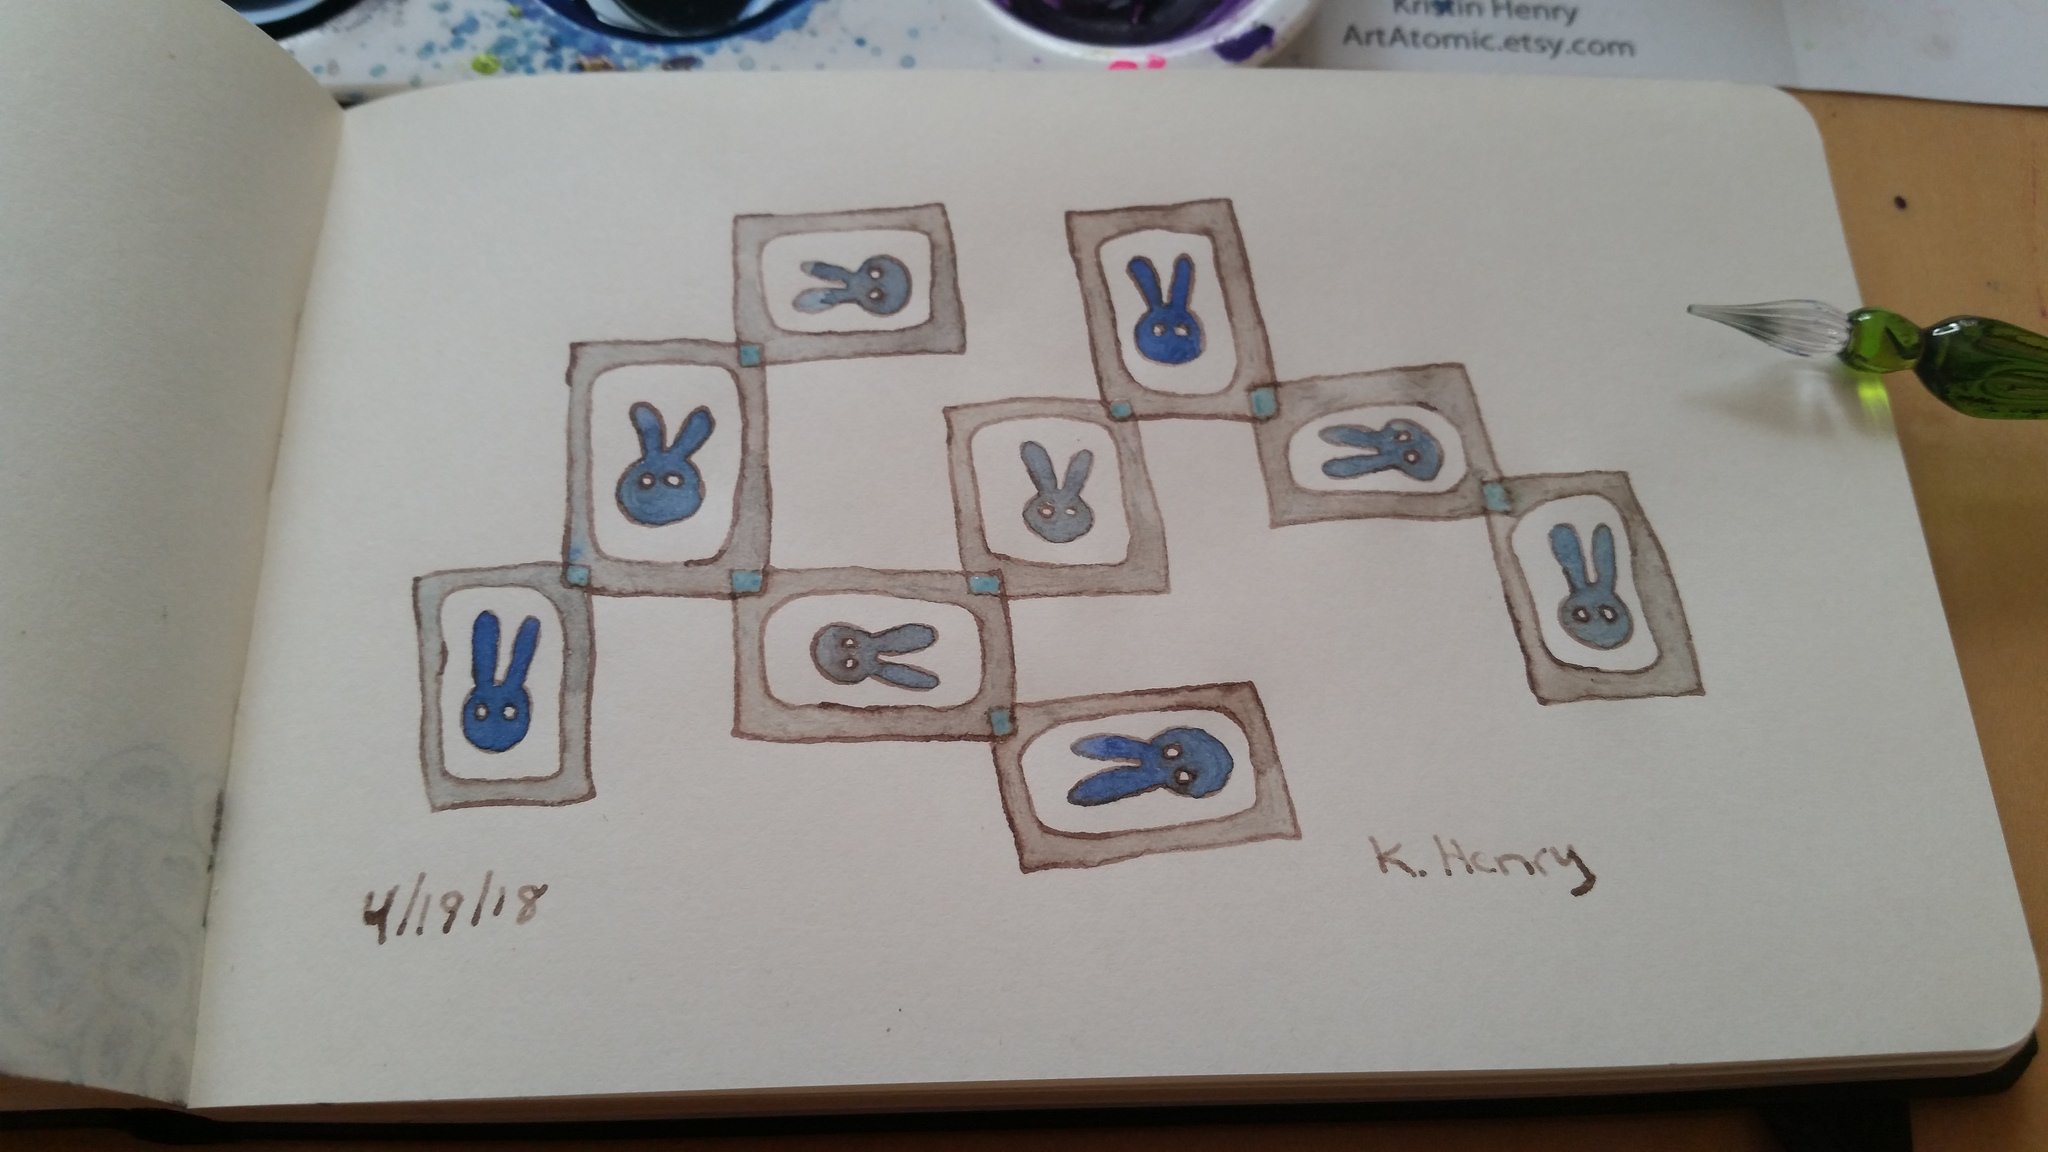 Kristin Henry
ArtAtomic.etsy.com
4/19/18
K. Henry